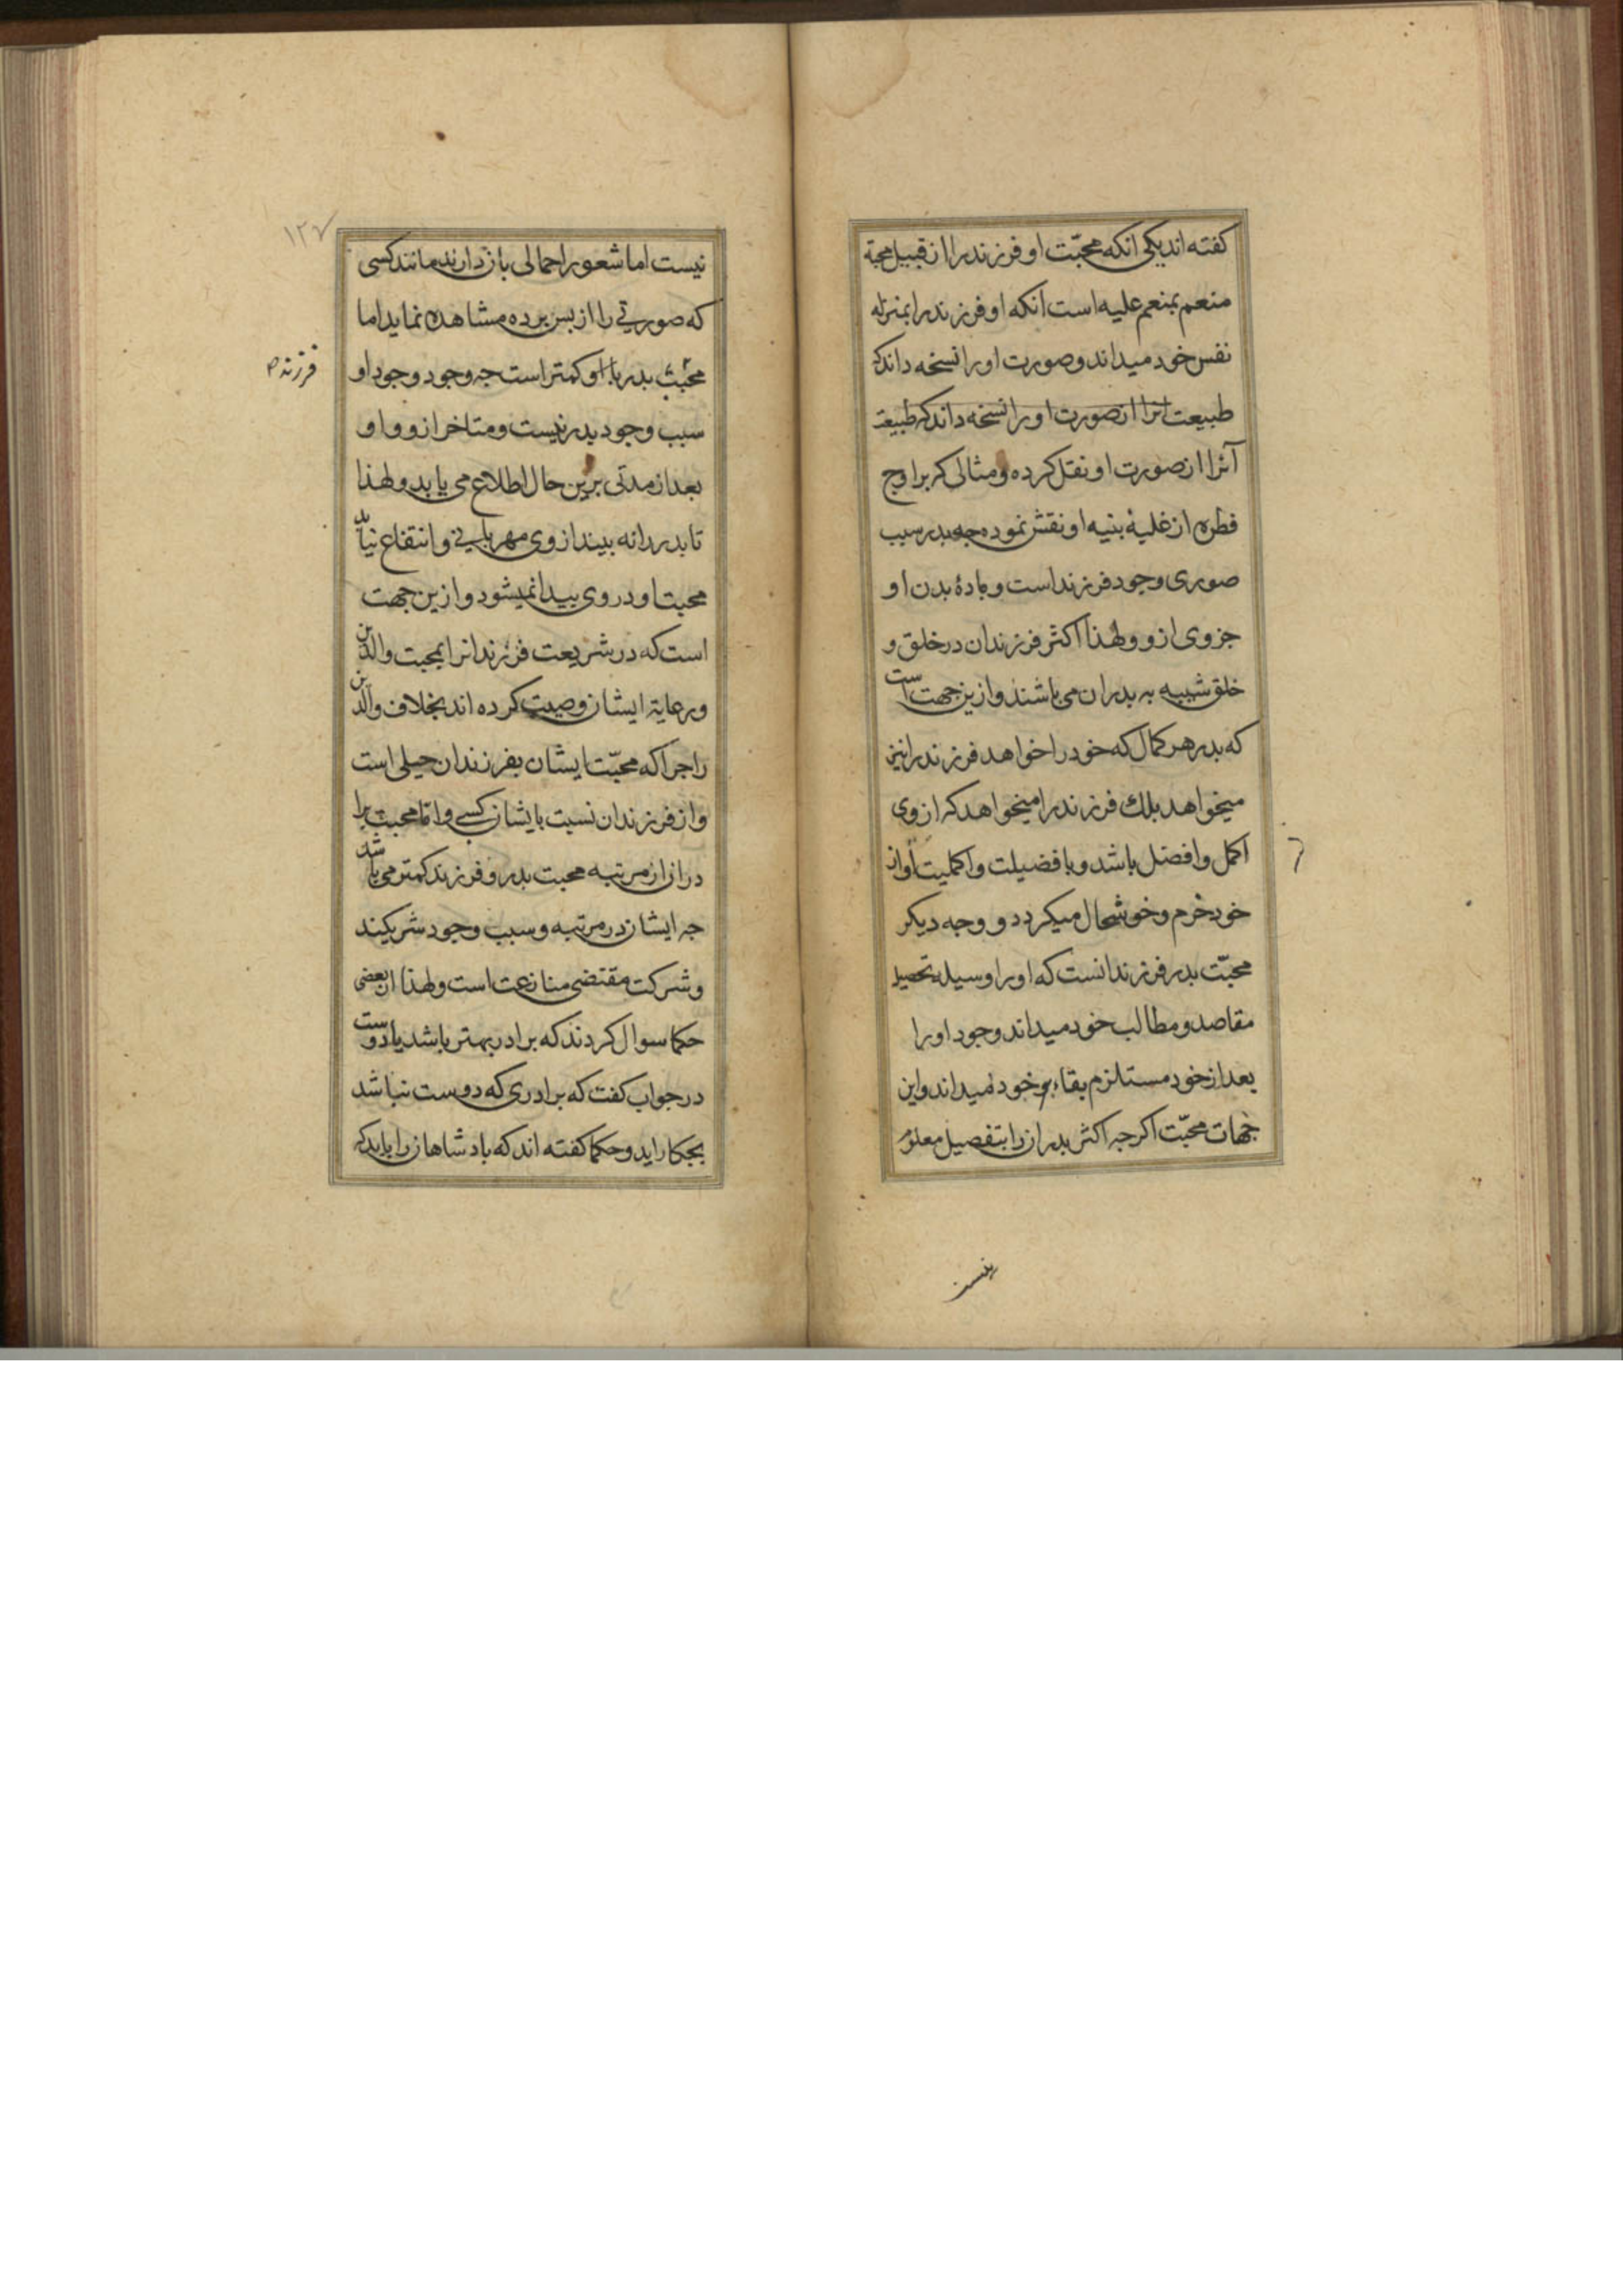 کفته اند یکی انکه محبّت او فرزند را از قبیل محبة
منعم بمنعم علیه است انکه او فرزند را بمنزله
نفس خود میداند و صورت او را نسخه داند که
طبیعت انرا از صورت او را نسخه داند که طبیعت
آنرا از صورت او نقل کرده و مثالی که بر اوج
فطره از غلیهٔ بنیه او نقش نموده جه بدر سبب
صوری وجود فرزند است و مادهٔ بدن او
جزوی ازو و لهذا اکثر فرزندان در خلق و
خلق شبیه به بدران می باشند و ازین جهت است
که بدر هر کمال که خود را خواهد فرزند را نیز
میخواهد بلك فرزند را میخواهد که از وی
اکمل و افضل باشد و با فضیلت و اکملیت او از
خود خرم و خوشحال میکردد و وجه دیکر
محبّت بدر فرزند انست که او را وسیله تحصیل
مقاصد و مطالب خود میداند و وجود او را
بعد از خود مستلزم بقاء خود میداند و این
جهات محبّت اکرجه اکثر بدرانرا بتفصیل معلوم
نیست
۱۲۷
نیست اما شعور اجمالی باز دارند مانند کسی
که صورتی را از بس برده مشاهده نماید اما
محبت بدر با او کمتر است جه وجود وجود او
فرزند
سبب وجود بدر نیست و متاخر ازو و او
بعد از مدتی برین حال اطلاع می یابد و لهذا
تا بدر را نه بیند از وی مهربانی و انتفاع نیابد
محبت او در وی بیدا نمیشود و ازین جهت
است که در شریعت فرزندانرا بمحبت والدین
و رعایة ایشان وصیت کرده اند بخلاف والدین
را جراکه محبّت ایشان بفرزندان جبلی است
و از فرزندان نسبت بایشان کسبی و اما محبت برا
دران از مرتبه محبت بدر و فرزند کمتر می باشد
جه ایشان در مرتبه و سبب وجود شریکند
و شرکت مقتضی منازعت است و لهذا از بعضی
حکما سوال کردند که برادر بهتر باشد یا دوست
در جواب کفت که برادری که دوست نباشد
بجکار اید و حکما کفته اند که بادشاهانرا باید که